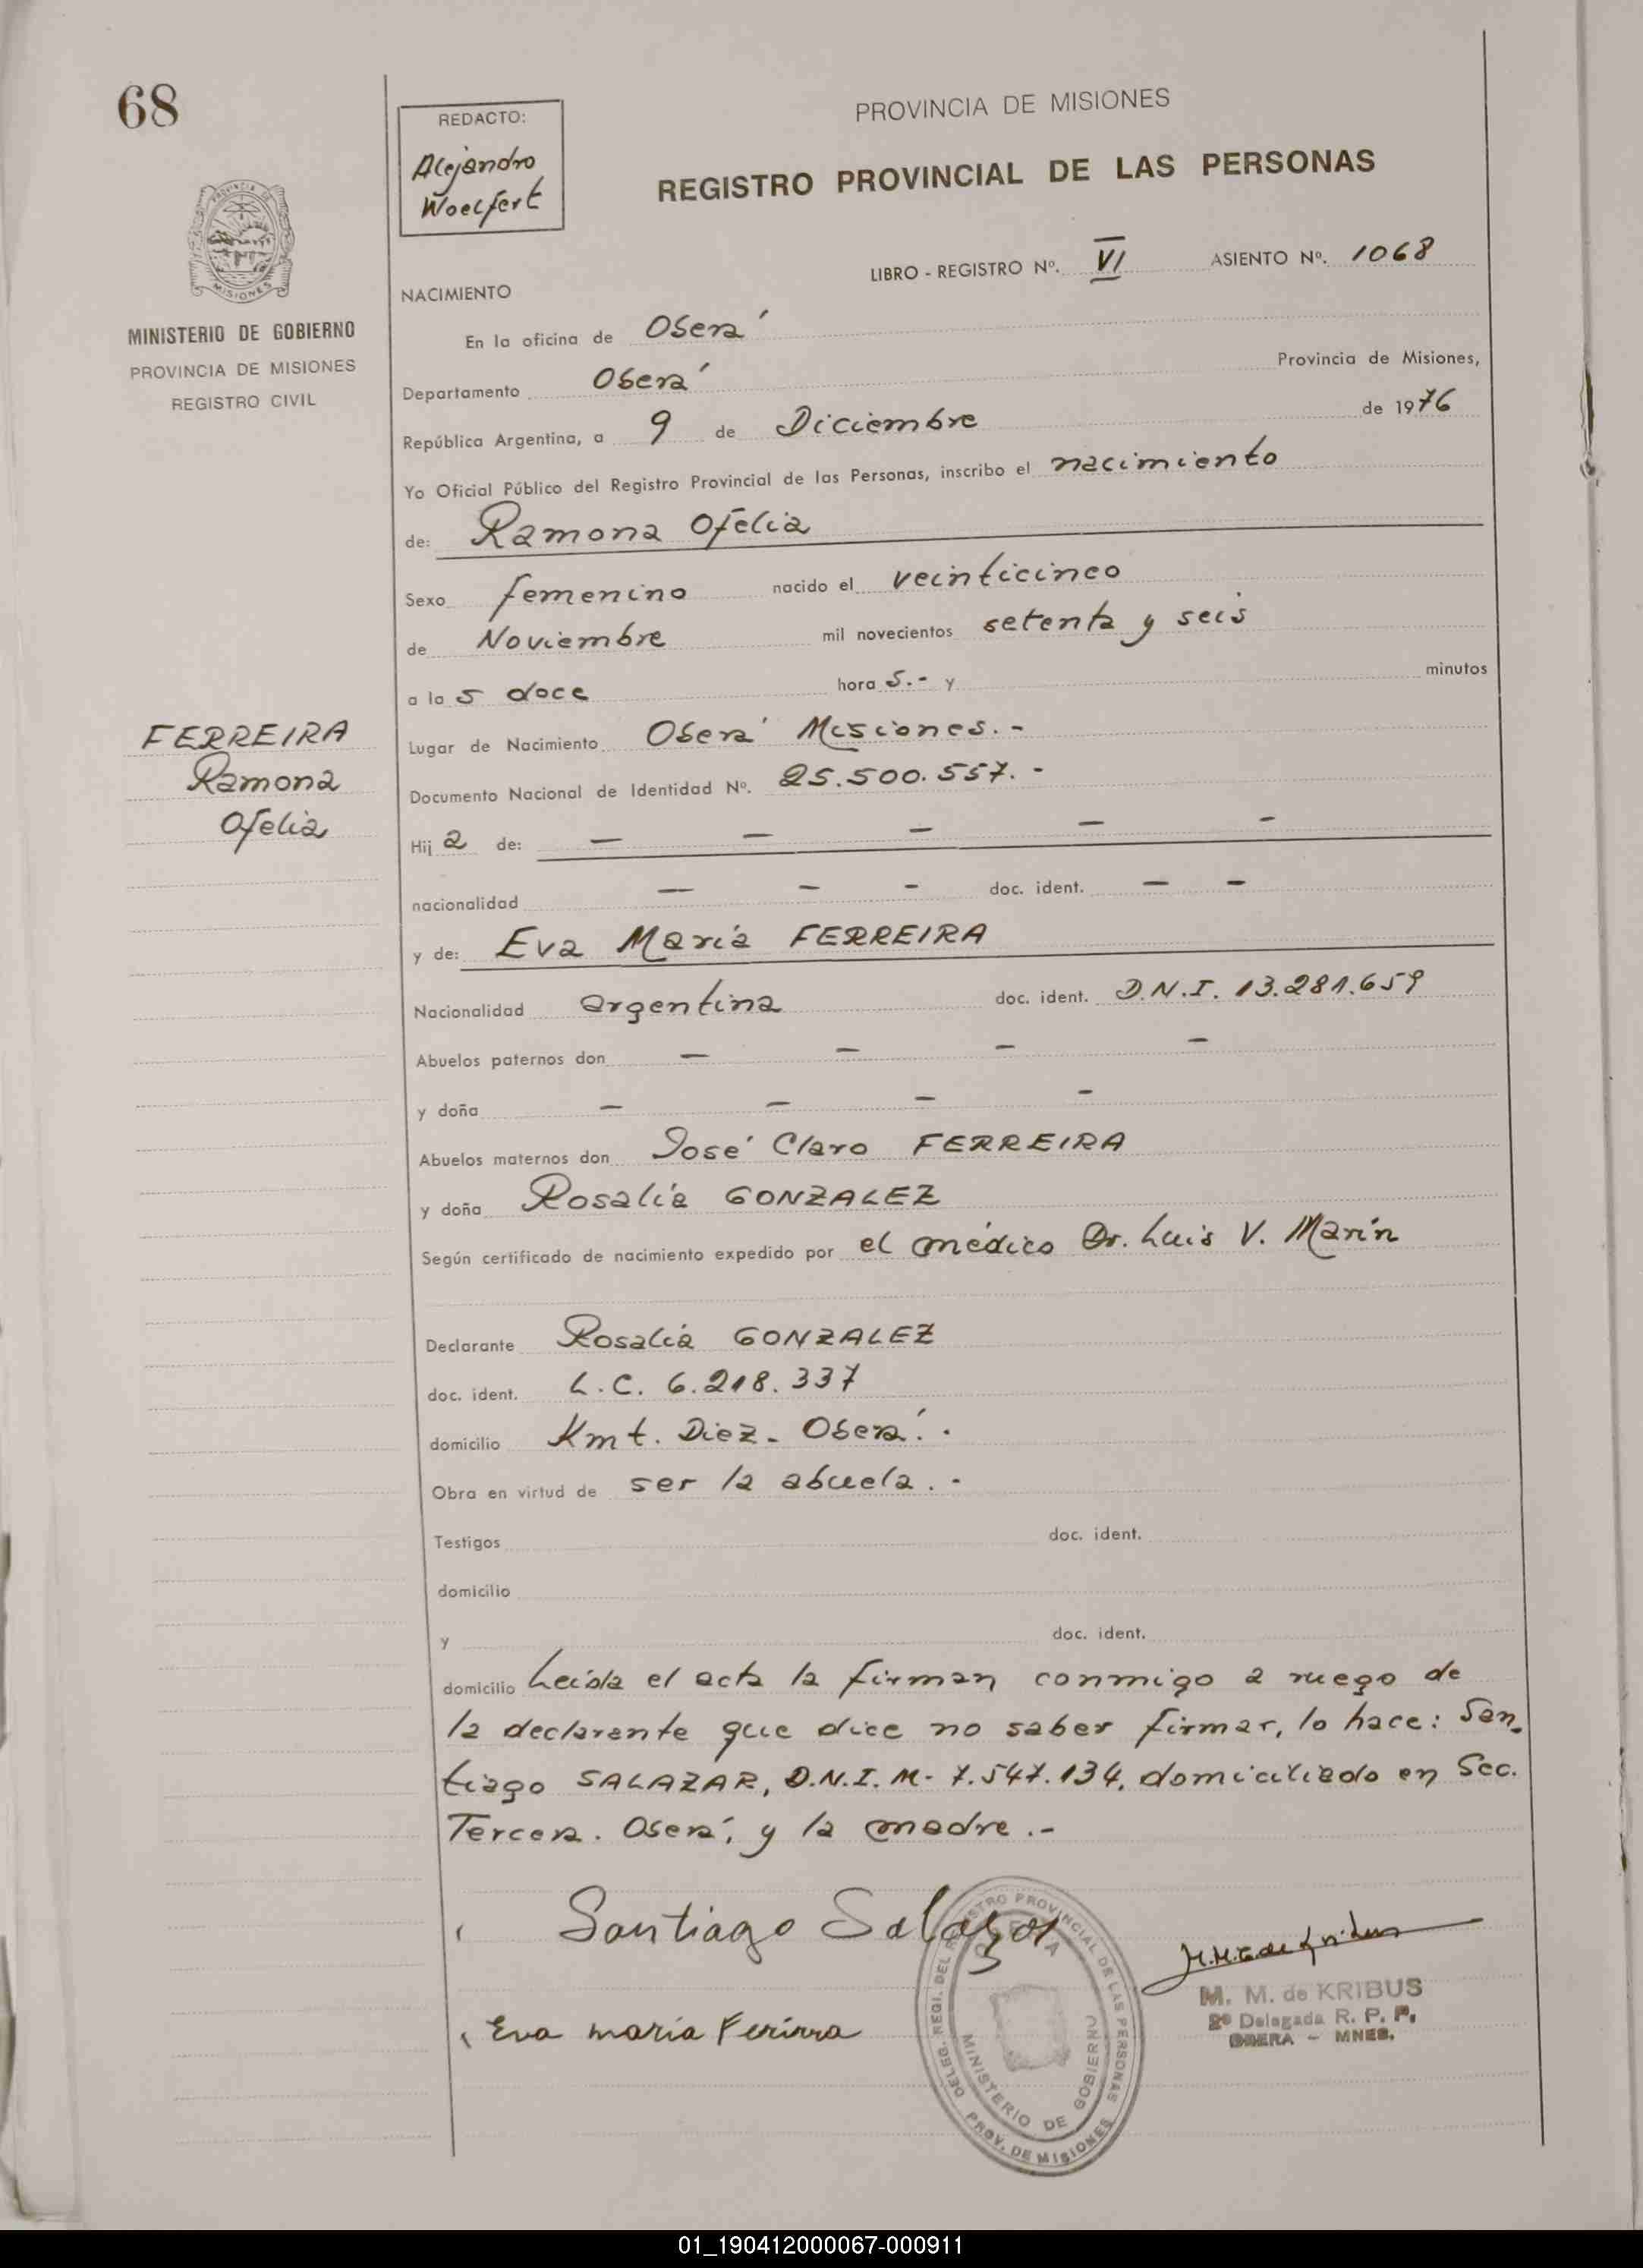 68
REDACTO:
Alejandro
Woelfert
PROVINCIA DE MISIONES
REGISTRO PROVINCIAL DE LAS PERSONAS
PROVINCIA DE
MISIONES
MINISTERIO DE GOBIERNO
PROVINCIA DE MISIONES
REGISTRO CIVIL
LIBRO - REGISTRO Nº. VI ASIENTO Nº. 1068
NACIMIENTO
En la oficina de Oberá
Departamento Oberá Provincia de Misiones,
República Argentina, a 9 de Diciembre de 1976
Yo Oficial Público del Registro Provincial de las Personas, inscribo el nacimiento
de: Ramona Ofelia
Sexo femenino nacido el veinticinco
de Noviembre mil novecientos setenta y seis
a la s doce hora s.- y minutos
FERREIRA
Ramona
Ofelia
Lugar de Nacimiento Oberá Misiones.-
Documento Nacional de Identidad Nº. 25.500.557.-
Hij a de: — — — — -
nacionalidad — - - doc. ident. — -
y de: Eva María FERREIRA
Nacionalidad argentina doc. ident. D.N.I. 13.281.659
Abuelos paternos don — — — —
y doña — — — -
Abuelos maternos don José Claro FERREIRA
y doña Rosalía GONZALEZ
Según certificado de nacimiento expedido por el médico Dr. Luis V. Marín
Declarante Rosalía GONZALEZ
doc. ident. L.C. 6.218.337
domicilio Kmt. Diez- Oberá.
Obra en virtud de ser la abuela.-
Testigos doc. ident.
domicilio
y doc. ident.
domicilio Leída el acta la firman conmigo a ruego de
la declarante que dice no saber firmar, lo hace: San-
tiago SALAZAR, D.N.I. M- 7.547.134, domiciliado en Sec.
Tercera. Oberá, y la madre.-
Santiago Salazar
Eva maria Ferirra
DELEG. REGI. DEL REGISTRO PROVINCIAL DE LAS PERSONAS
OBERA
MINISTERIO DE GOBIERNO
PROV. DE MISIONES
M. M. de KRIBUS
2º Delegada R. P. P.
OBERA - MNES.
01_190412000067-000911